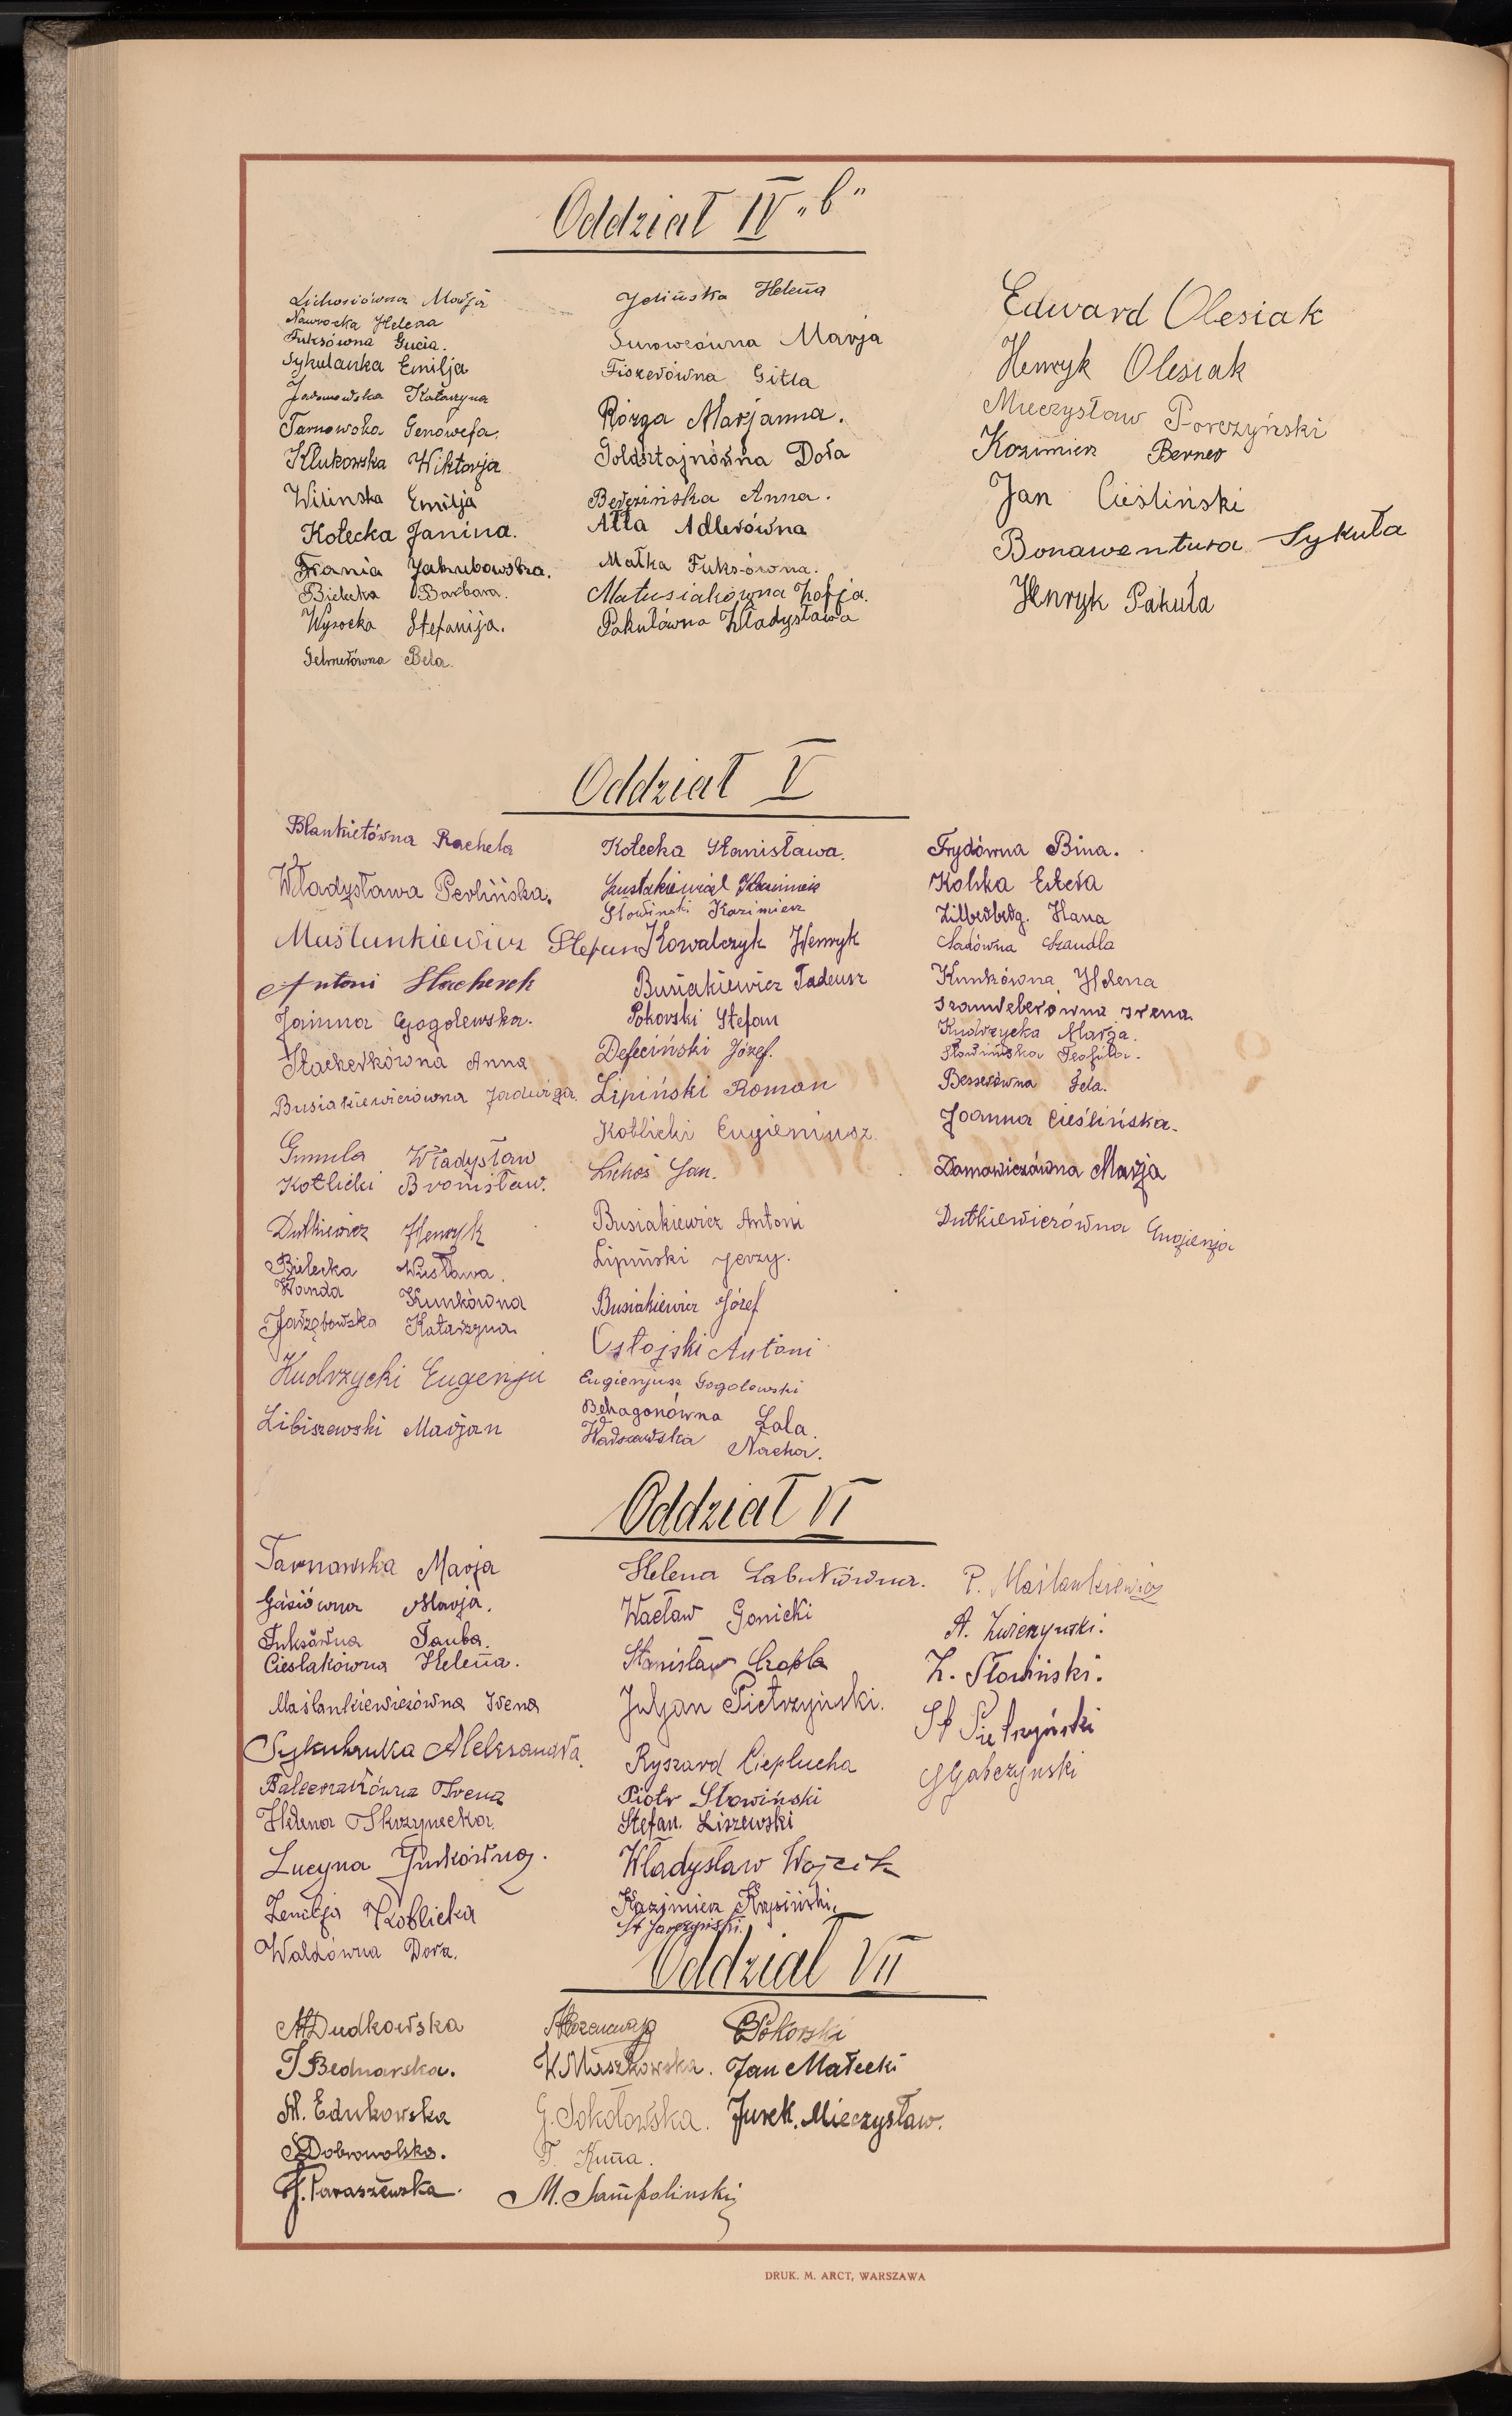 Oddział IV „b"
Lichosiówna Marja
Nawrocka Helena
Fuksówna Gucia.
Sykulanka Emilja
Katarzyna
Tarnowska Genowefa.
Klukowska Wiktorja
Wilinska Emilja
Kotecka Janina.
Frania Jakubowska.
Bielecka Barbara.
Wysocka Stefanija.
Gelnerówna Bela.
Jelińska Helena
Surowcówna Marja
Fiszerówna Gitla
Rózga Marjanna.
Goldsztajnówna Dora
Berezińska Anna.
Atla Adlerówna
Małka Fuksówna.
Matusiakówna Zofja.
Pakułówna Władysława
Edward Olesiak
Henryk Olesiak
Mieczysław Porczyński
Kazimierz Berner
Jan Cieśliński
Bonawentura Sykuła
Henryk Pakuła
Oddział V
Blankietówna Rachela
Władysława Perlińska.
Maślankiewicz Stefan
Antoni Stacherek
Janina Gogolewska.
Stacherkówna Anna
Busiakiewiczówna Jadwiga.
Gumula Władysław
Kotlicki Bronisław.
Dutkiewicz Henryk
Bielecka Wiesława.
Wanda Kunkówna
Jarzębowska Katarzyna
Kudrzycki Eugenju
Libiszewski Marjan
Kotecka Stanisława.
Szustakiewicz Kazimierz
Słowinski Kazimierz
Kowalczyk Henryk
Busiakiewicz Tadeusz
Pokorski Stefan
Defeciński Józef.
Lipiński Roman
Koblicki Eugieniusz.
Lichoś Jan.
Busiakiewicz Antoni
Lipiński Jerzy.
Busiakiewicz Józef
Ostojski Antoni
Eugienjusz Gogolewski
Behagonówna Lala.
Warszawska Nacha.
Frydówna Bina.
Kolska Estera
Zilberberg. Hana
Sadówna Szandla
Kunkówna Helena
Szamweberówna Irena
Kudrzycka Marja.
Słowińska Teofila.
Besserówna Fela.
Joanna Cieślińska.
Damowiczówna Marja
Dutkiewiczówna Eugienja
Oddział VI
Tarnawska Marja
Gasiówna Marja.
Fuksówna Tauba.
Cieslakówna Helena.
Maślankiewiczówna Irena
Sykulanka Aleksandra.
Balcerzakówna Irena
Helena Skrzynecka.
Lucyna Jurkówna.
Zenobja Koblicka
Waldówna Dora.
Helena Łabutówna.
Wacław Gonicki
Stanisław Czapla
Juljan Pietrzyński.
Ryszard Cieplucha
Piotr Słowiński
Stefan. Liszewski
Władysław Wojcik
Kazimierz Krysiński,
St Jarczyński.
P. Maślankiewicz
A. Zwierzynski.
Z. Słowiński.
St Pietrzyński
G Gabczynski
Oddział VII
M Dudkowska
J Bednarska.
M. Edukowska
S Dobrowolska.
J. Paraszewska.
W Maszkowska.
G. Sokołowska.
T. Kuna.
M. Sampolinski
Pokorski
Jan Małecki
Jurek. Mieczysław.
DRUK. M. ARCT, WARSZAWA